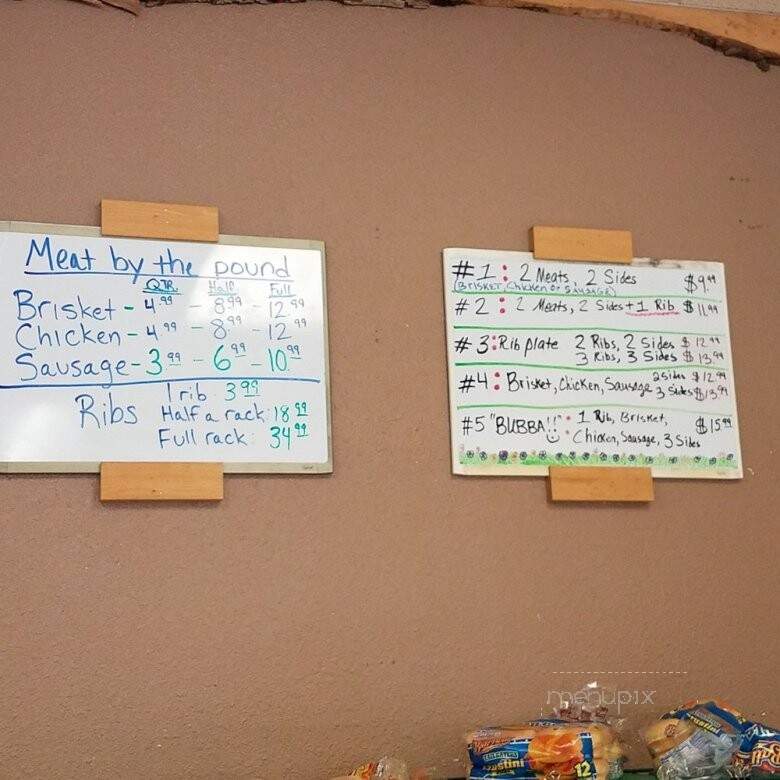 Meat by the pound
QTR. Half Full
Brisket - 4.99 - 8.99 - 12.99
Chicken - 4.99 - 8.99 - 12.99
Sausage - 3.99 - 6.99 - 10.99
Ribs
1 rib: 3.99
Half a rack: 18.99
Full rack: 34.99
#1: 2 Meats, 2 Sides $9.99
(BRISKET, Chicken or SAUSAGE)
#2: 2 Meats, 2 Sides + 1 Rib $11.99
#3: Rib plate 2 Ribs, 2 Sides $12.99
3 Ribs, 3 Sides $13.99
#4: Brisket, Chicken, Sausage 2 sides $12.99
3 Sides $13.99
#5 "BUBBA!!": 1 Rib, Brisket, $15.99
Chicken, Sausage, 3 Sides
menupix
12